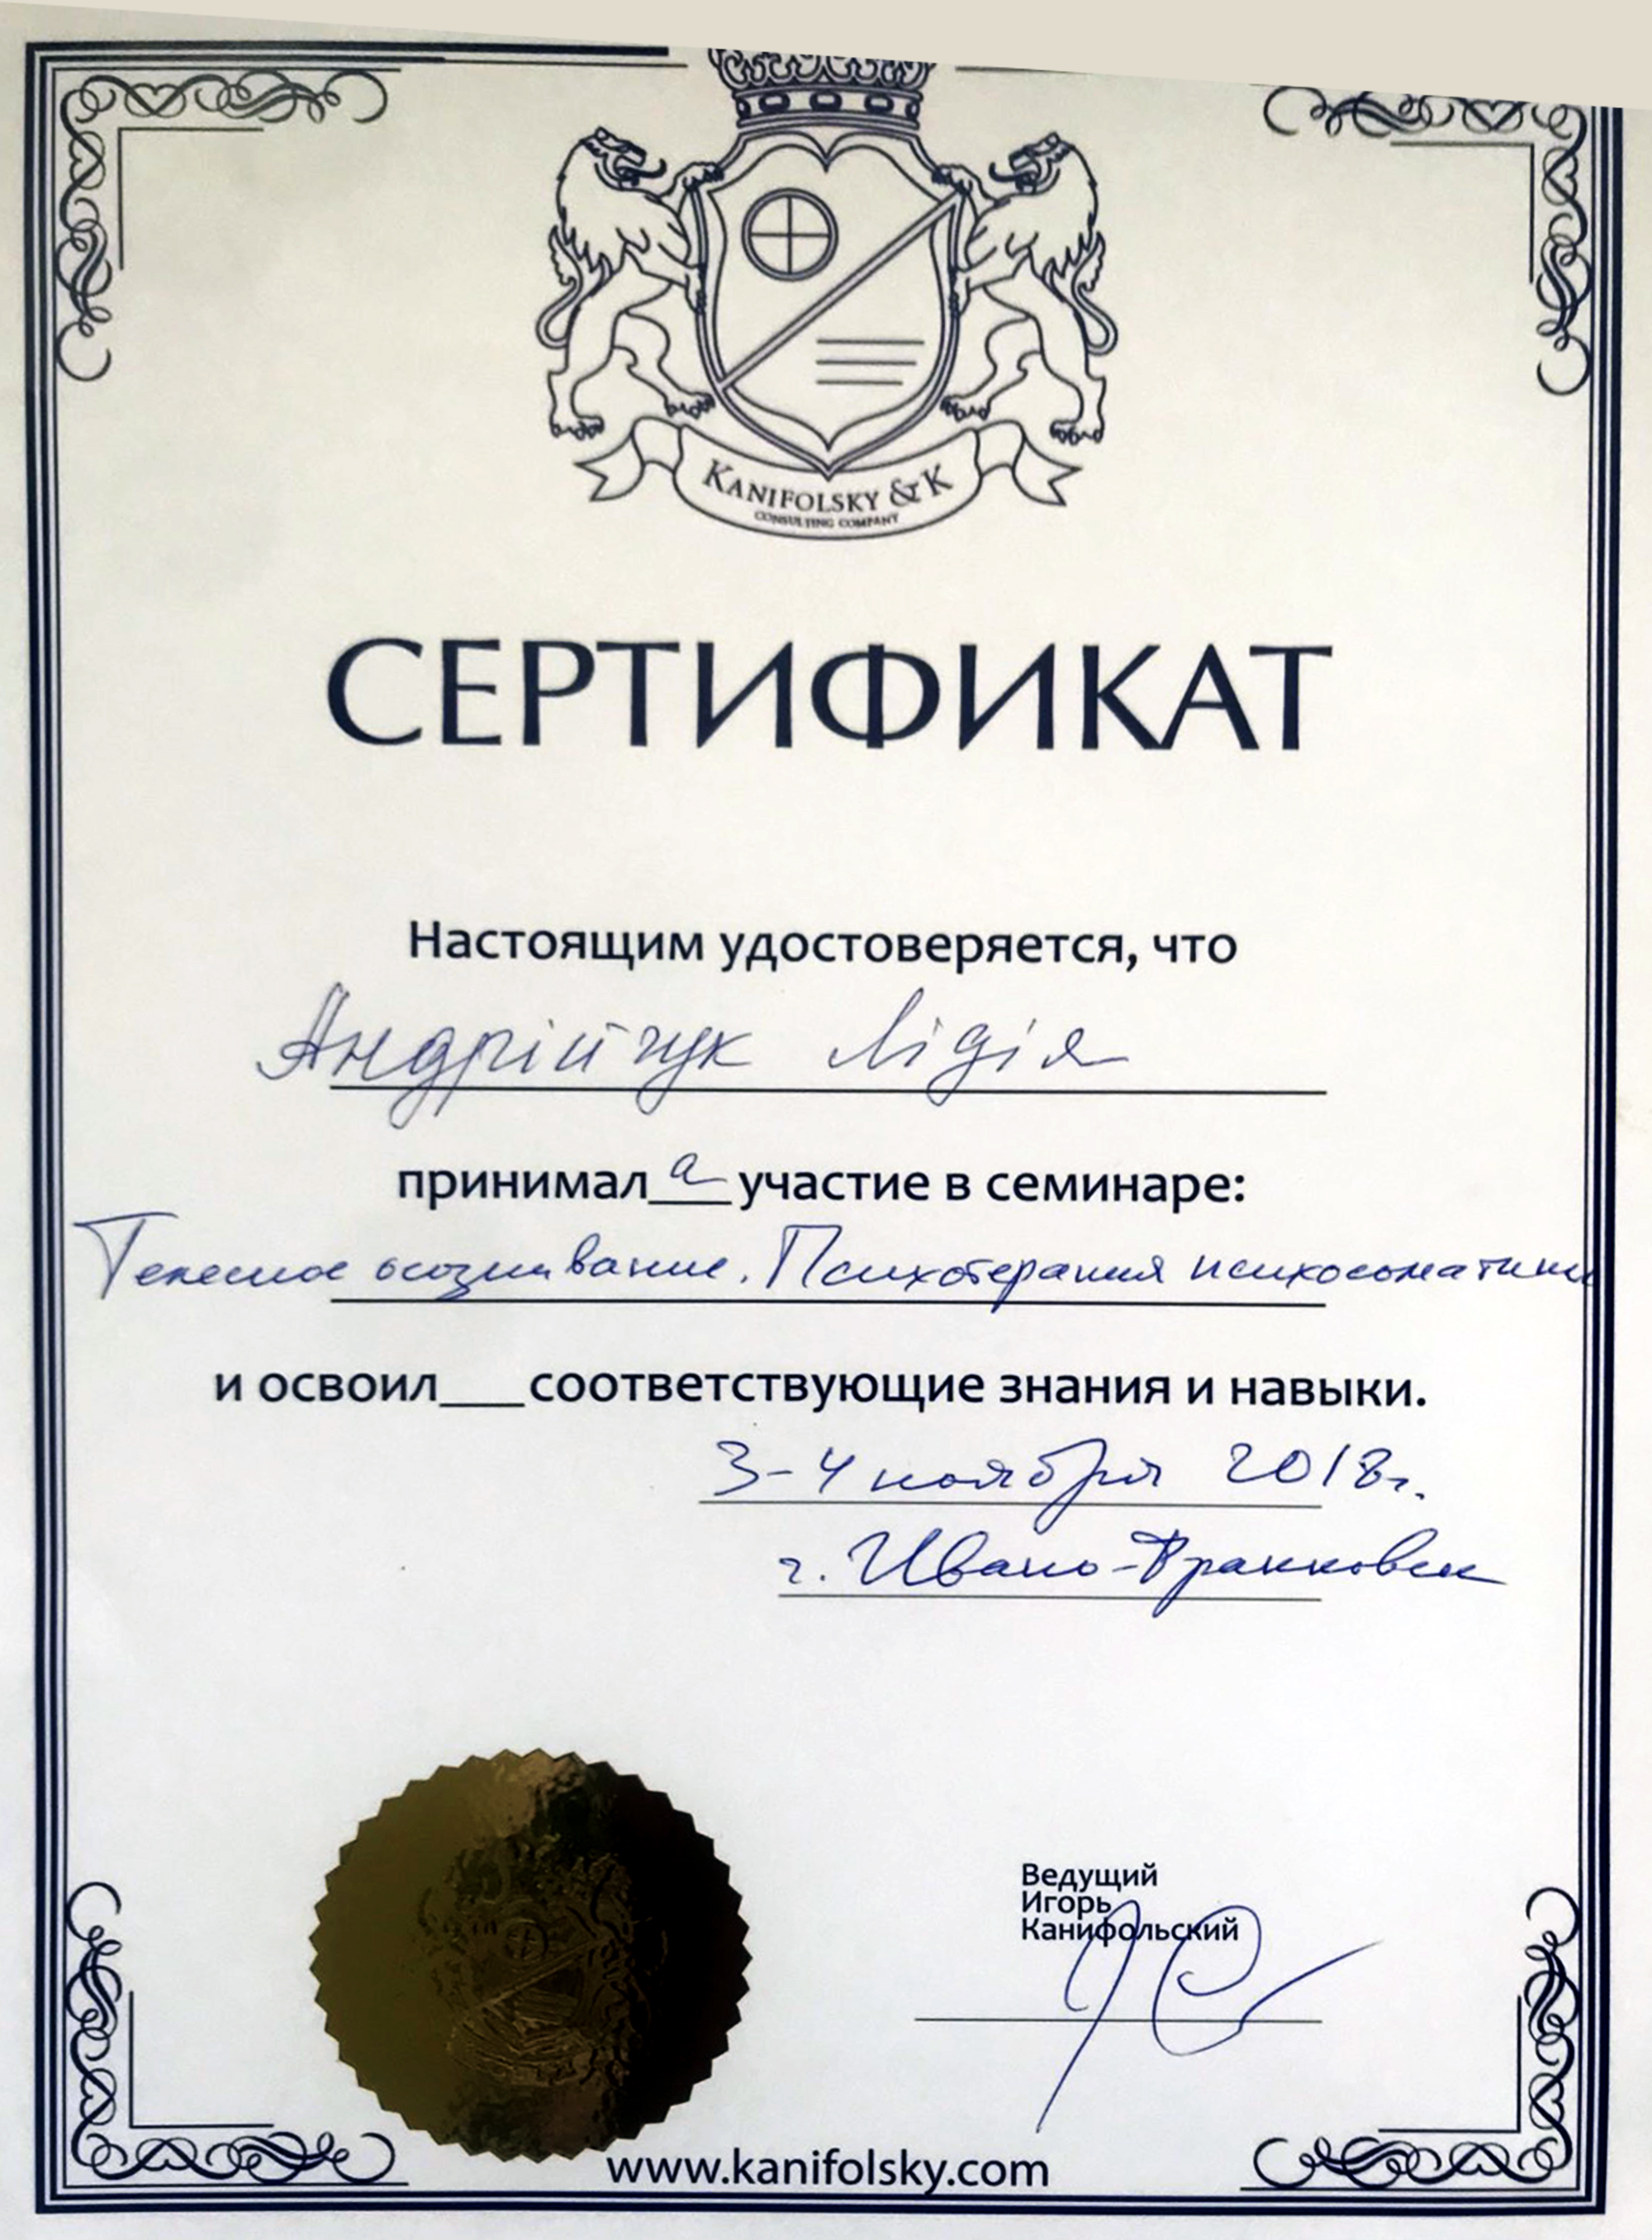 KANIFOLSKY & K
CONSULTING COMPANY
СЕРТИФИКАТ
Настоящим удостоверяется, что
Андрійчук Лідія
принимал а участие в семинаре:
Телесное осознавание. Психотерапия психосоматики
и освоил___соответствующие знания и навыки.
3-4 ноября 2018г.
г. Ивано-Франковск
Ведущий
Игорь
Канифольский
www.kanifolsky.com